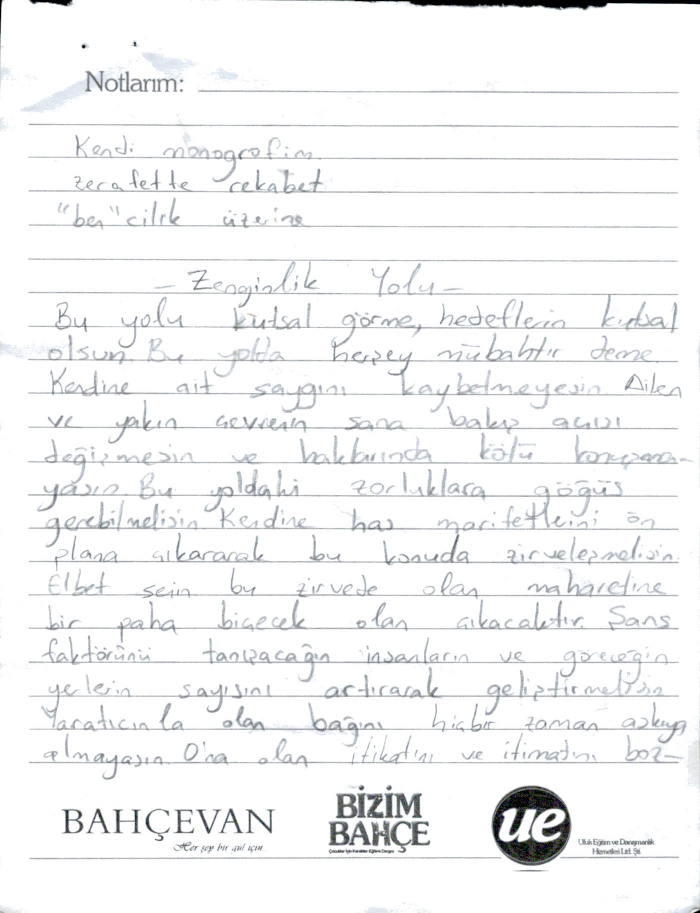 Notlarım:
Kendi monografim
zerafette rekabet
"ben"cilik üzerine
- Zenginlik Yolu -
Bu yolu kutsal görme, hedeflerin kutsal
olsun. Bu yolda herşey mübahtır deme.
Kendine ait saygını kaybetmeyesin Ailen
ve yakın çevrenin sana bakış açısı
değişmesin ve haklarında kötü konuşma-
yasın. Bu yoldaki zorluklara göğüs
gerebilmelisin. Kendine has marifetlerini ön
plana çıkararak bu konuda zirveleşmelisin.
Elbet senin bu zirvede olan maharetine
bir paha biçecek olan çıkacaktır. Şans
faktörünü tanışacağın insanların ve göreceğin
yerlerin sayısını artırarak geliştirmelisin
Yaratıcınla olan bağını hiçbir zaman askıya
almayasın. O'na olan itikatını ve itimatını boz-
BAHÇEVAN
Her şey bir gül için...
BİZİM
BAHÇE
Çocuklar İçin Karakter Eğitimi Dergisi
ue
Ufuk Eğitim ve Danışmanlık
Hizmetleri Ltd. Şti.